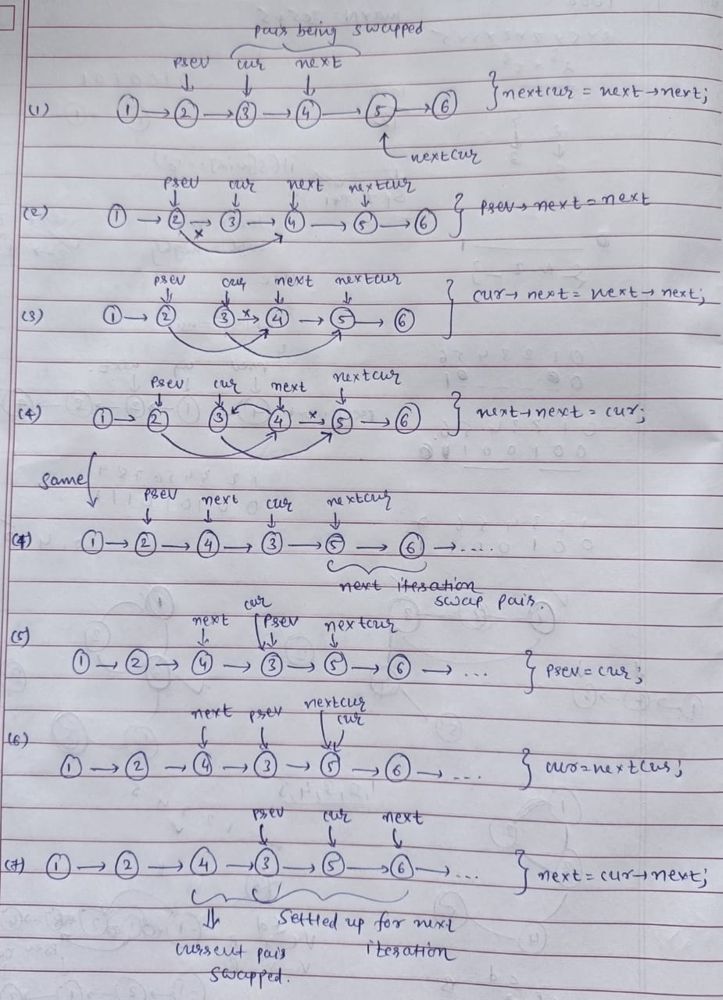 pair being swapped
prev cur next
(1) 1 → 2 → 3 → 4 → 5 → 6 } nextcur = next→next;
nextcur
prev cur next nextcur
(2) 1 → 2 → 3 → 4 → 5 → 6 } prev→next = next
x
prev cur next nextcur
(3) 1 → 2 3 x→ 4 → 5 → 6 } cur→next = next→next;
prev cur next nextcur
(4) 1 → 2 3 4 x→ 5 → 6 } next→next = cur;
same
prev next cur nextcur
(4) 1 → 2 → 4 → 3 → 5 → 6 → ....
next iteration
swap pair.
cur
(5) next prev nextcur
1 → 2 → 4 → 3 → 5 → 6 → ... } prev = cur;
nextcur
next prev cur
(6)
1 → 2 → 4 → 3 → 5 → 6 → ... } cur = nextcur;
prev cur next
(7) 1 → 2 → 4 → 3 → 5 → 6 → ... } next = cur→next;
settled up for next
current pair iteration
swapped.